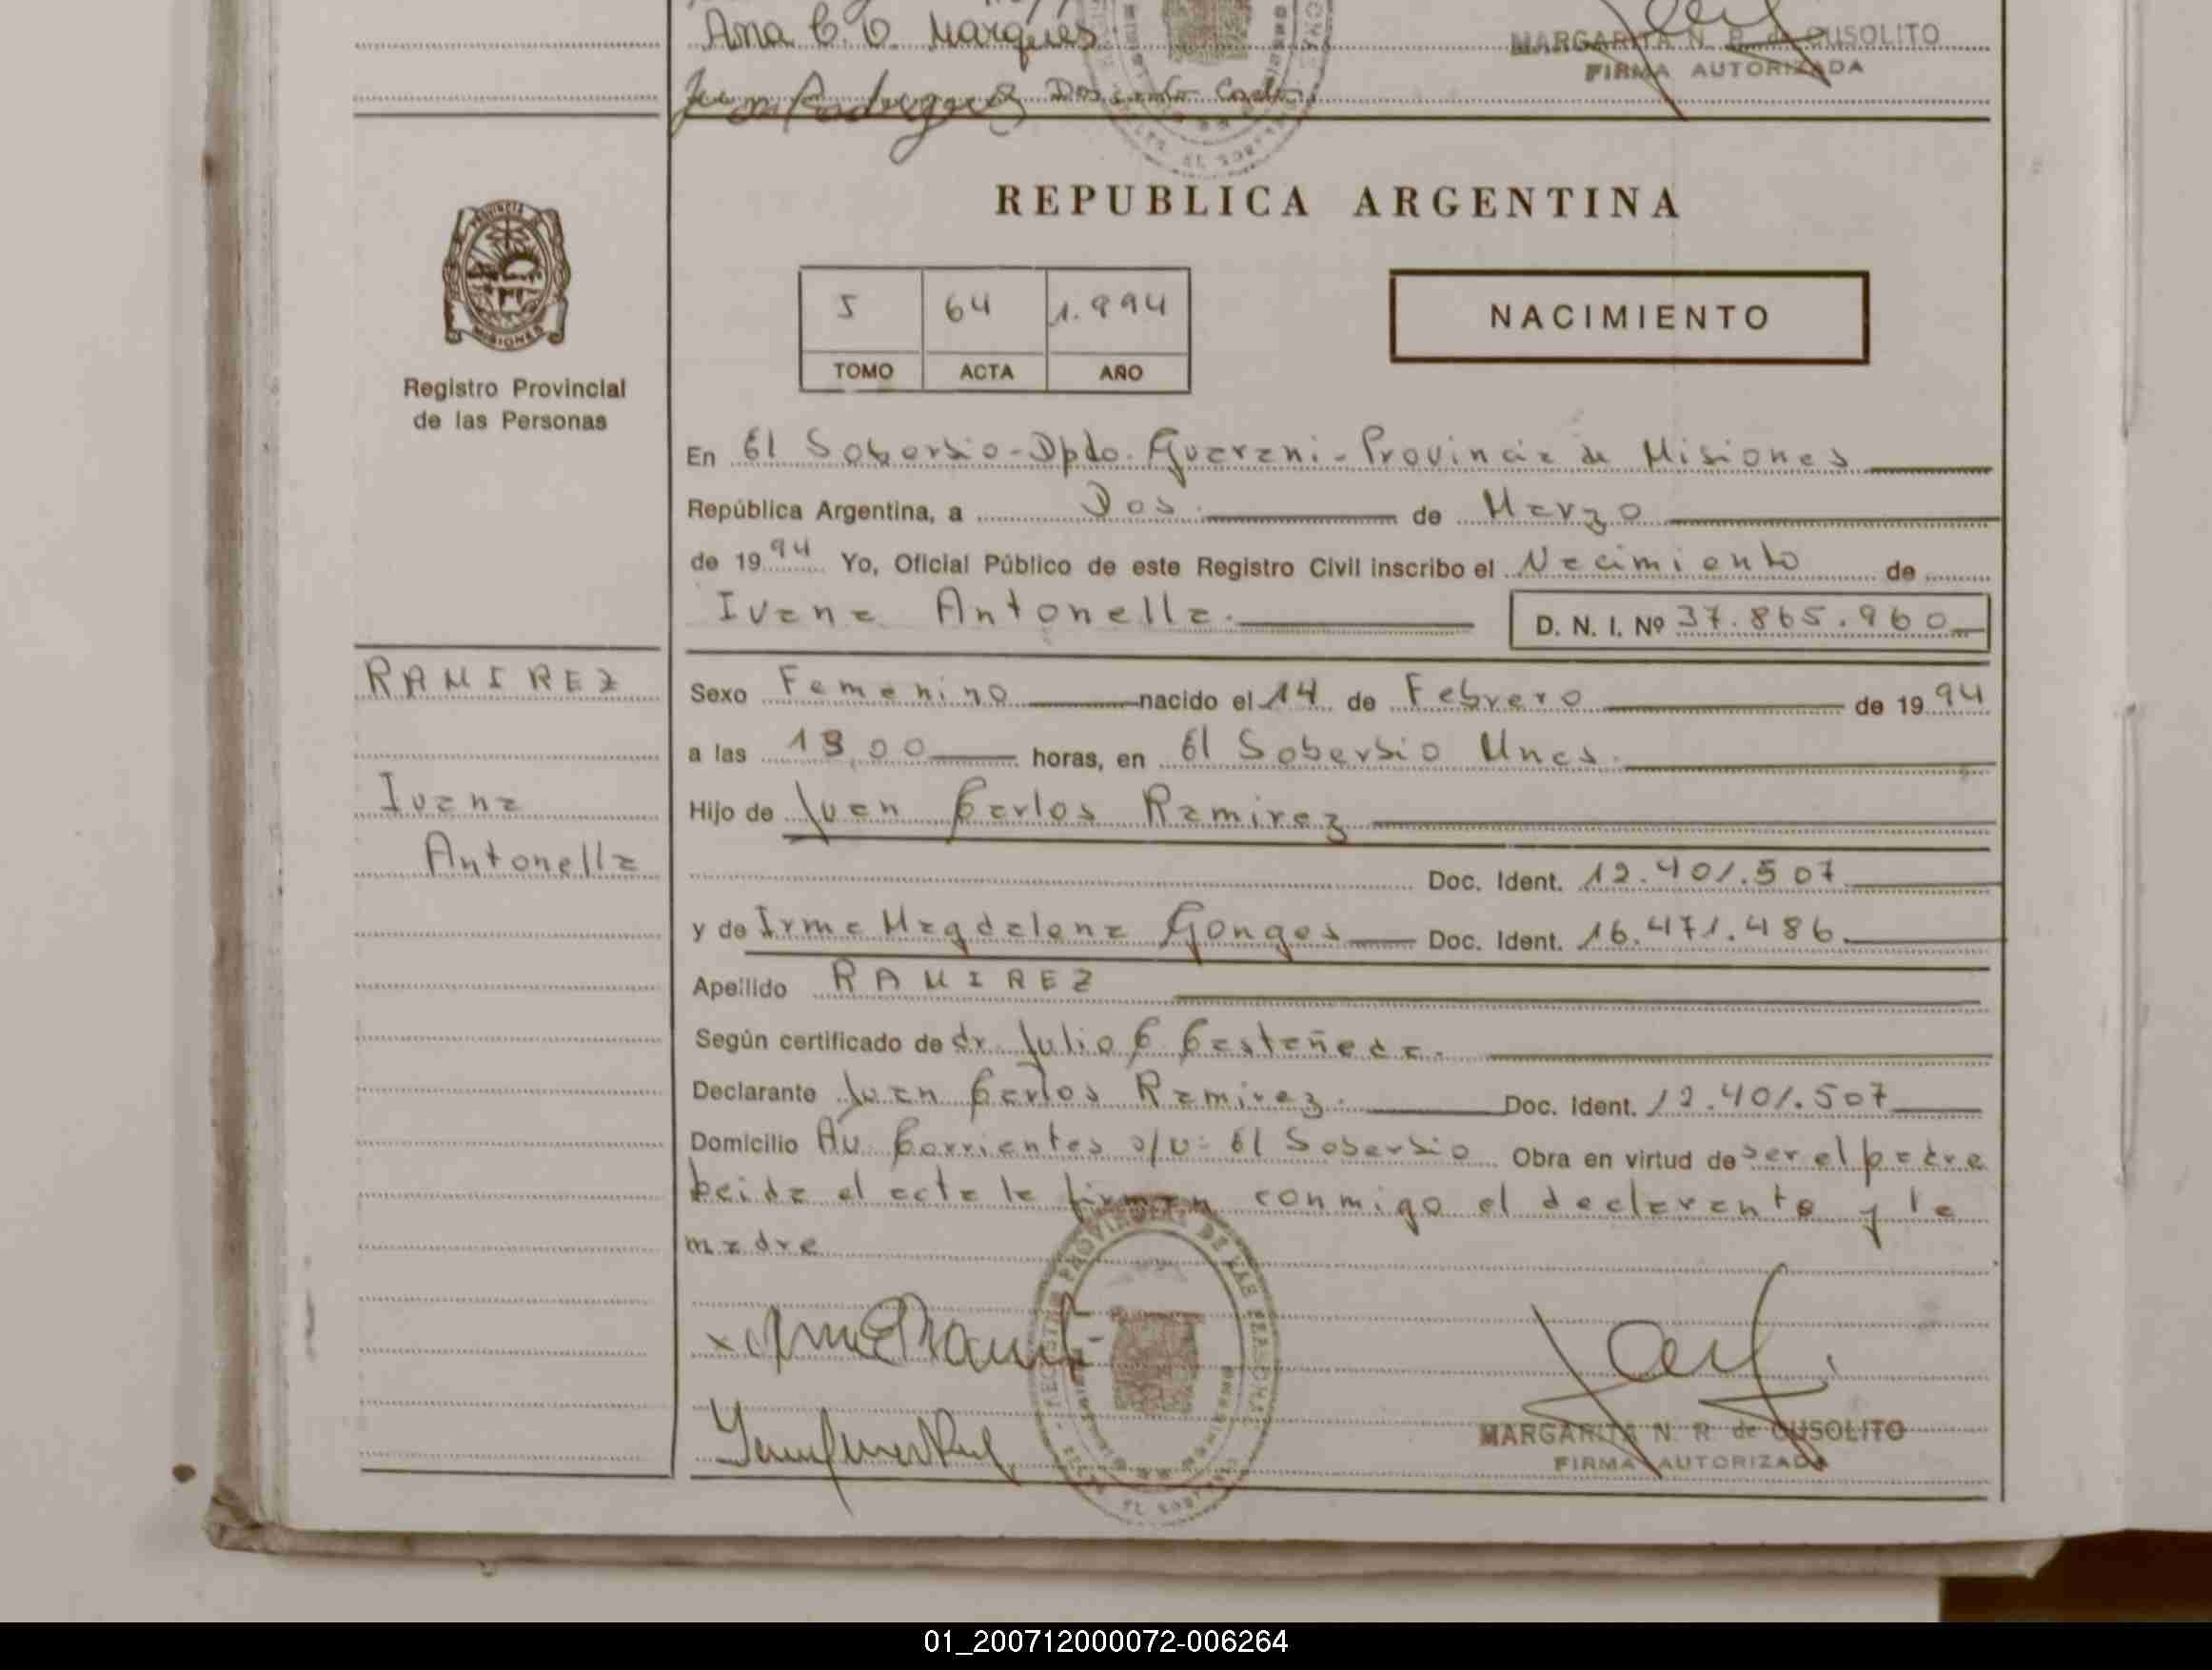 Ana C. O. Marqués
MARGARITA N. R. de CUSOLITO
FIRMA AUTORIZADA
Juan Rodriguez
REPUBLICA ARGENTINA
PROVINCIA
MISIONES
5 64 1.994
TOMO ACTA AÑO
NACIMIENTO
Registro Provincial
de las Personas
En El Soberbio - Dpto. Guarani - Provincia de Misiones
República Argentina, a Dos de Marzo
de 1994 Yo, Oficial Público de este Registro Civil inscribo el Nacimiento de
Ivana Antonella. D. N. I. Nº 37.865.960
RAMIREZ
Ivana
Antonella
Sexo Femenino nacido el 14 de Febrero de 1994
a las horas, en El Soberbio Mnes.
Hijo de Juan Carlos Ramirez
Doc. Ident. 12.401.507
y de Irma Magdalena Gonges Doc. Ident. 16.471.486
Apellido RAMIREZ
Según certificado de dr. Julio C Castañeda.
Declarante Juan Carlos Ramirez. Doc. Ident. 12.401.507
Domicilio Av. Corrientes s/u: El Soberbio Obra en virtud de ser el padre
Leida el acta la firman conmigo el declarante y la
madre
REGISTRO PROVINCIAL DE LAS PERSONAS
EL SOBERBIO
MARGARITA N. R. de CUSOLITO
FIRMA AUTORIZADA
01_200712000072-006264